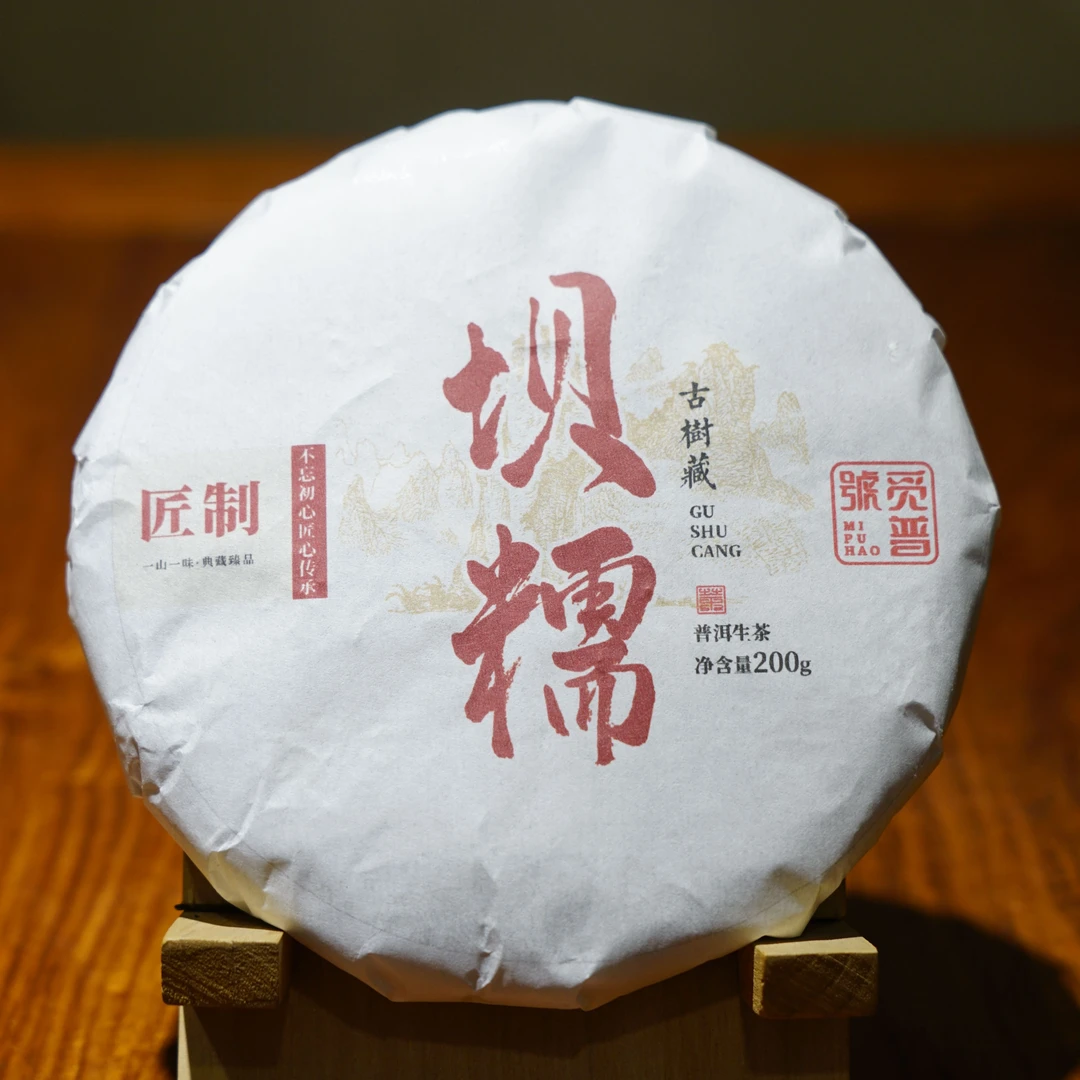 坝糯
古樹藏
GU
SHU
CANG
普洱生茶
净含量200g
匠制
一山一味·典藏臻品
不忘初心匠心传承
觅普號
MI
PU
HAO